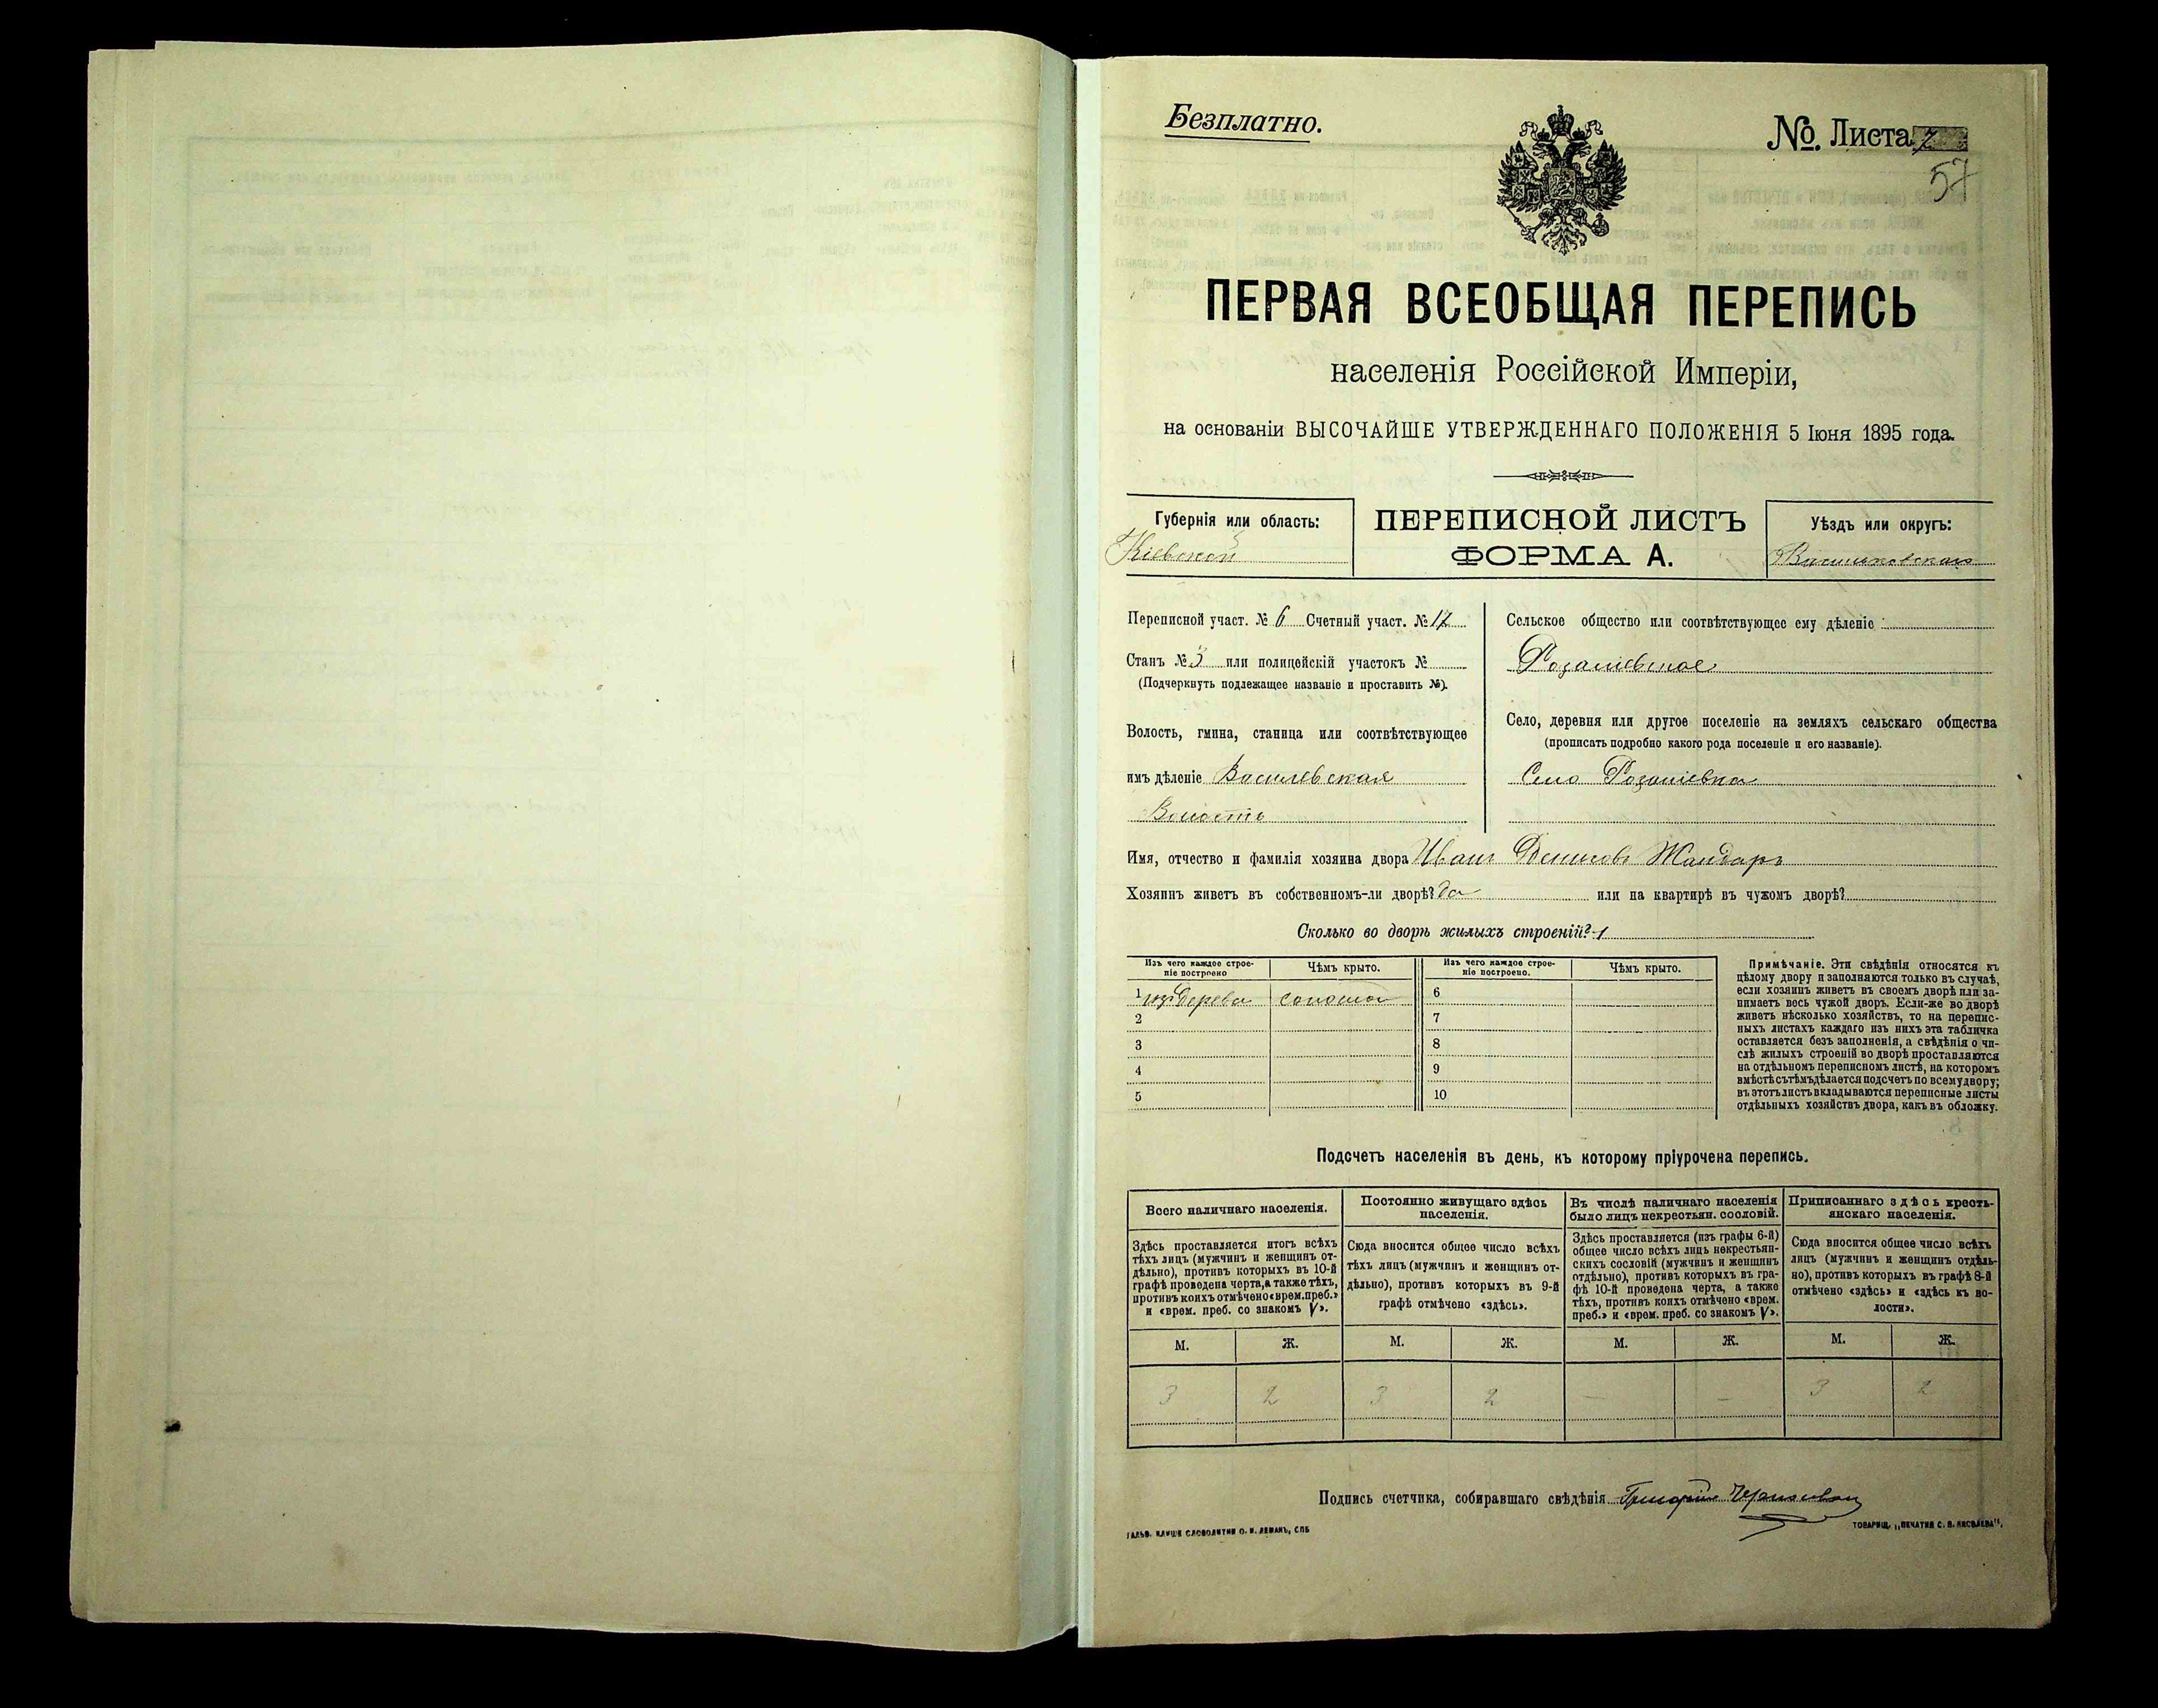 Безплатно.
№. Листа 7
57
ПЕРВАЯ ВСЕОБЩАЯ ПЕРЕПИСЬ
населенія Россійской Имперіи,
на основаніи ВЫСОЧАЙШЕ УТВЕРЖДЕННАГО ПОЛОЖЕНІЯ 5 Іюня 1895 года.
Губернія или область:
Кіевской
ПЕРЕПИСНОЙ ЛИСТЪ
ФОРМА А.
Уѣздъ или округъ:
Переписной участ. № 6 Счетный участ. № 17
Станъ № 3 или полицейскій участокъ №
(Подчеркнуть подлежащее названіе и проставить №).
Волость, гмина, станица или соотвѣтствующее
имъ дѣленіе Василевская
Волость
Сельское общество или соотвѣтствующее ему дѣленіе
Розаліевское
Село, деревня или другое поселеніе на земляхъ сельскаго общества
(прописать подробно какого рода поселеніе и его названіе).
Село Розаліевка
Имя, отчество и фамилія хозяина двора Иванъ Денисовъ Жандаръ
Хозяинъ живетъ въ собственномъ-ли дворѣ? да или на квартирѣ въ чужомъ дворѣ?
Сколько во дворѣ жилыхъ строеній? 1
Изъ чего каждое строе-
ніе построено
Чѣмъ крыто.
Изъ чего каждое строе-
ніе построено.
Чѣмъ крыто.
1 изъ дерева солома 6
2 7
3 8
4 9
5 10
Примѣчаніе. Эти свѣдѣнія относятся къ
цѣлому двору и заполняются только въ случаѣ,
если хозяинъ живетъ въ своемъ дворѣ или за-
нимаетъ весь чужой дворъ. Если-же во дворѣ
живетъ нѣсколько хозяйствъ, то на перепис-
ныхъ листахъ каждаго изъ нихъ эта табличка
оставляется безъ заполненія, а свѣдѣнія о чи-
слѣ жилыхъ строеній во дворѣ проставляются
на отдѣльномъ переписномъ листѣ, на которомъ
вмѣстѣ съ тѣмъ дѣлается подсчетъ по всему двору;
въ этотъ листъ вкладываются переписные листы
отдѣльныхъ хозяйствъ двора, какъ въ обложку.
Подсчетъ населенія въ день, къ которому пріурочена перепись.
Всего наличнаго населенія.
Постоянно живущаго здѣсь
населенія.
Въ числѣ наличнаго населенія
было лицъ некрестьян. сословій.
Приписаннаго здѣсь кресть-
янскаго населенія.
Здѣсь проставляется итогъ всѣхъ
тѣхъ лицъ (мужчинъ и женщинъ от-
дѣльно), противъ которыхъ въ 10-й
графѣ проведена черта, а также тѣхъ,
противъ коихъ отмѣчено «врем. преб.»
и «врем. преб. со знакомъ V».
Сюда вносится общее число всѣхъ
тѣхъ лицъ (мужчинъ и женщинъ от-
дѣльно), противъ которыхъ въ 9-й
графѣ отмѣчено «здѣсь».
Здѣсь проставляется (изъ графы 6-й)
общее число всѣхъ лицъ некрестьян-
скихъ сословій (мужчинъ и женщинъ
отдѣльно), противъ которыхъ въ гра-
фѣ 10-й проведена черта, а также
тѣхъ, противъ коихъ отмѣчено «врем.
преб.» и «врем. преб. со знакомъ V».
Сюда вносится общее число всѣхъ
лицъ (мужчинъ и женщинъ отдѣль-
но), противъ которыхъ въ графѣ 8-й
отмѣчено «здѣсь» и «здѣсь къ во-
лости».
М. Ж. М. Ж. М. Ж. М. Ж.
3 2 3 2 — — 3 2
Подпись счетчика, собиравшаго свѣдѣнія Григорій
ГАЛЬВ. КЛИШЕ СЛОВОЛИТНИ О. И. ЛЕМАНЪ, СПБ
ТОВАРИЩ. „ПЕЧАТНЯ С. П. ЯКОВЛЕВА“,